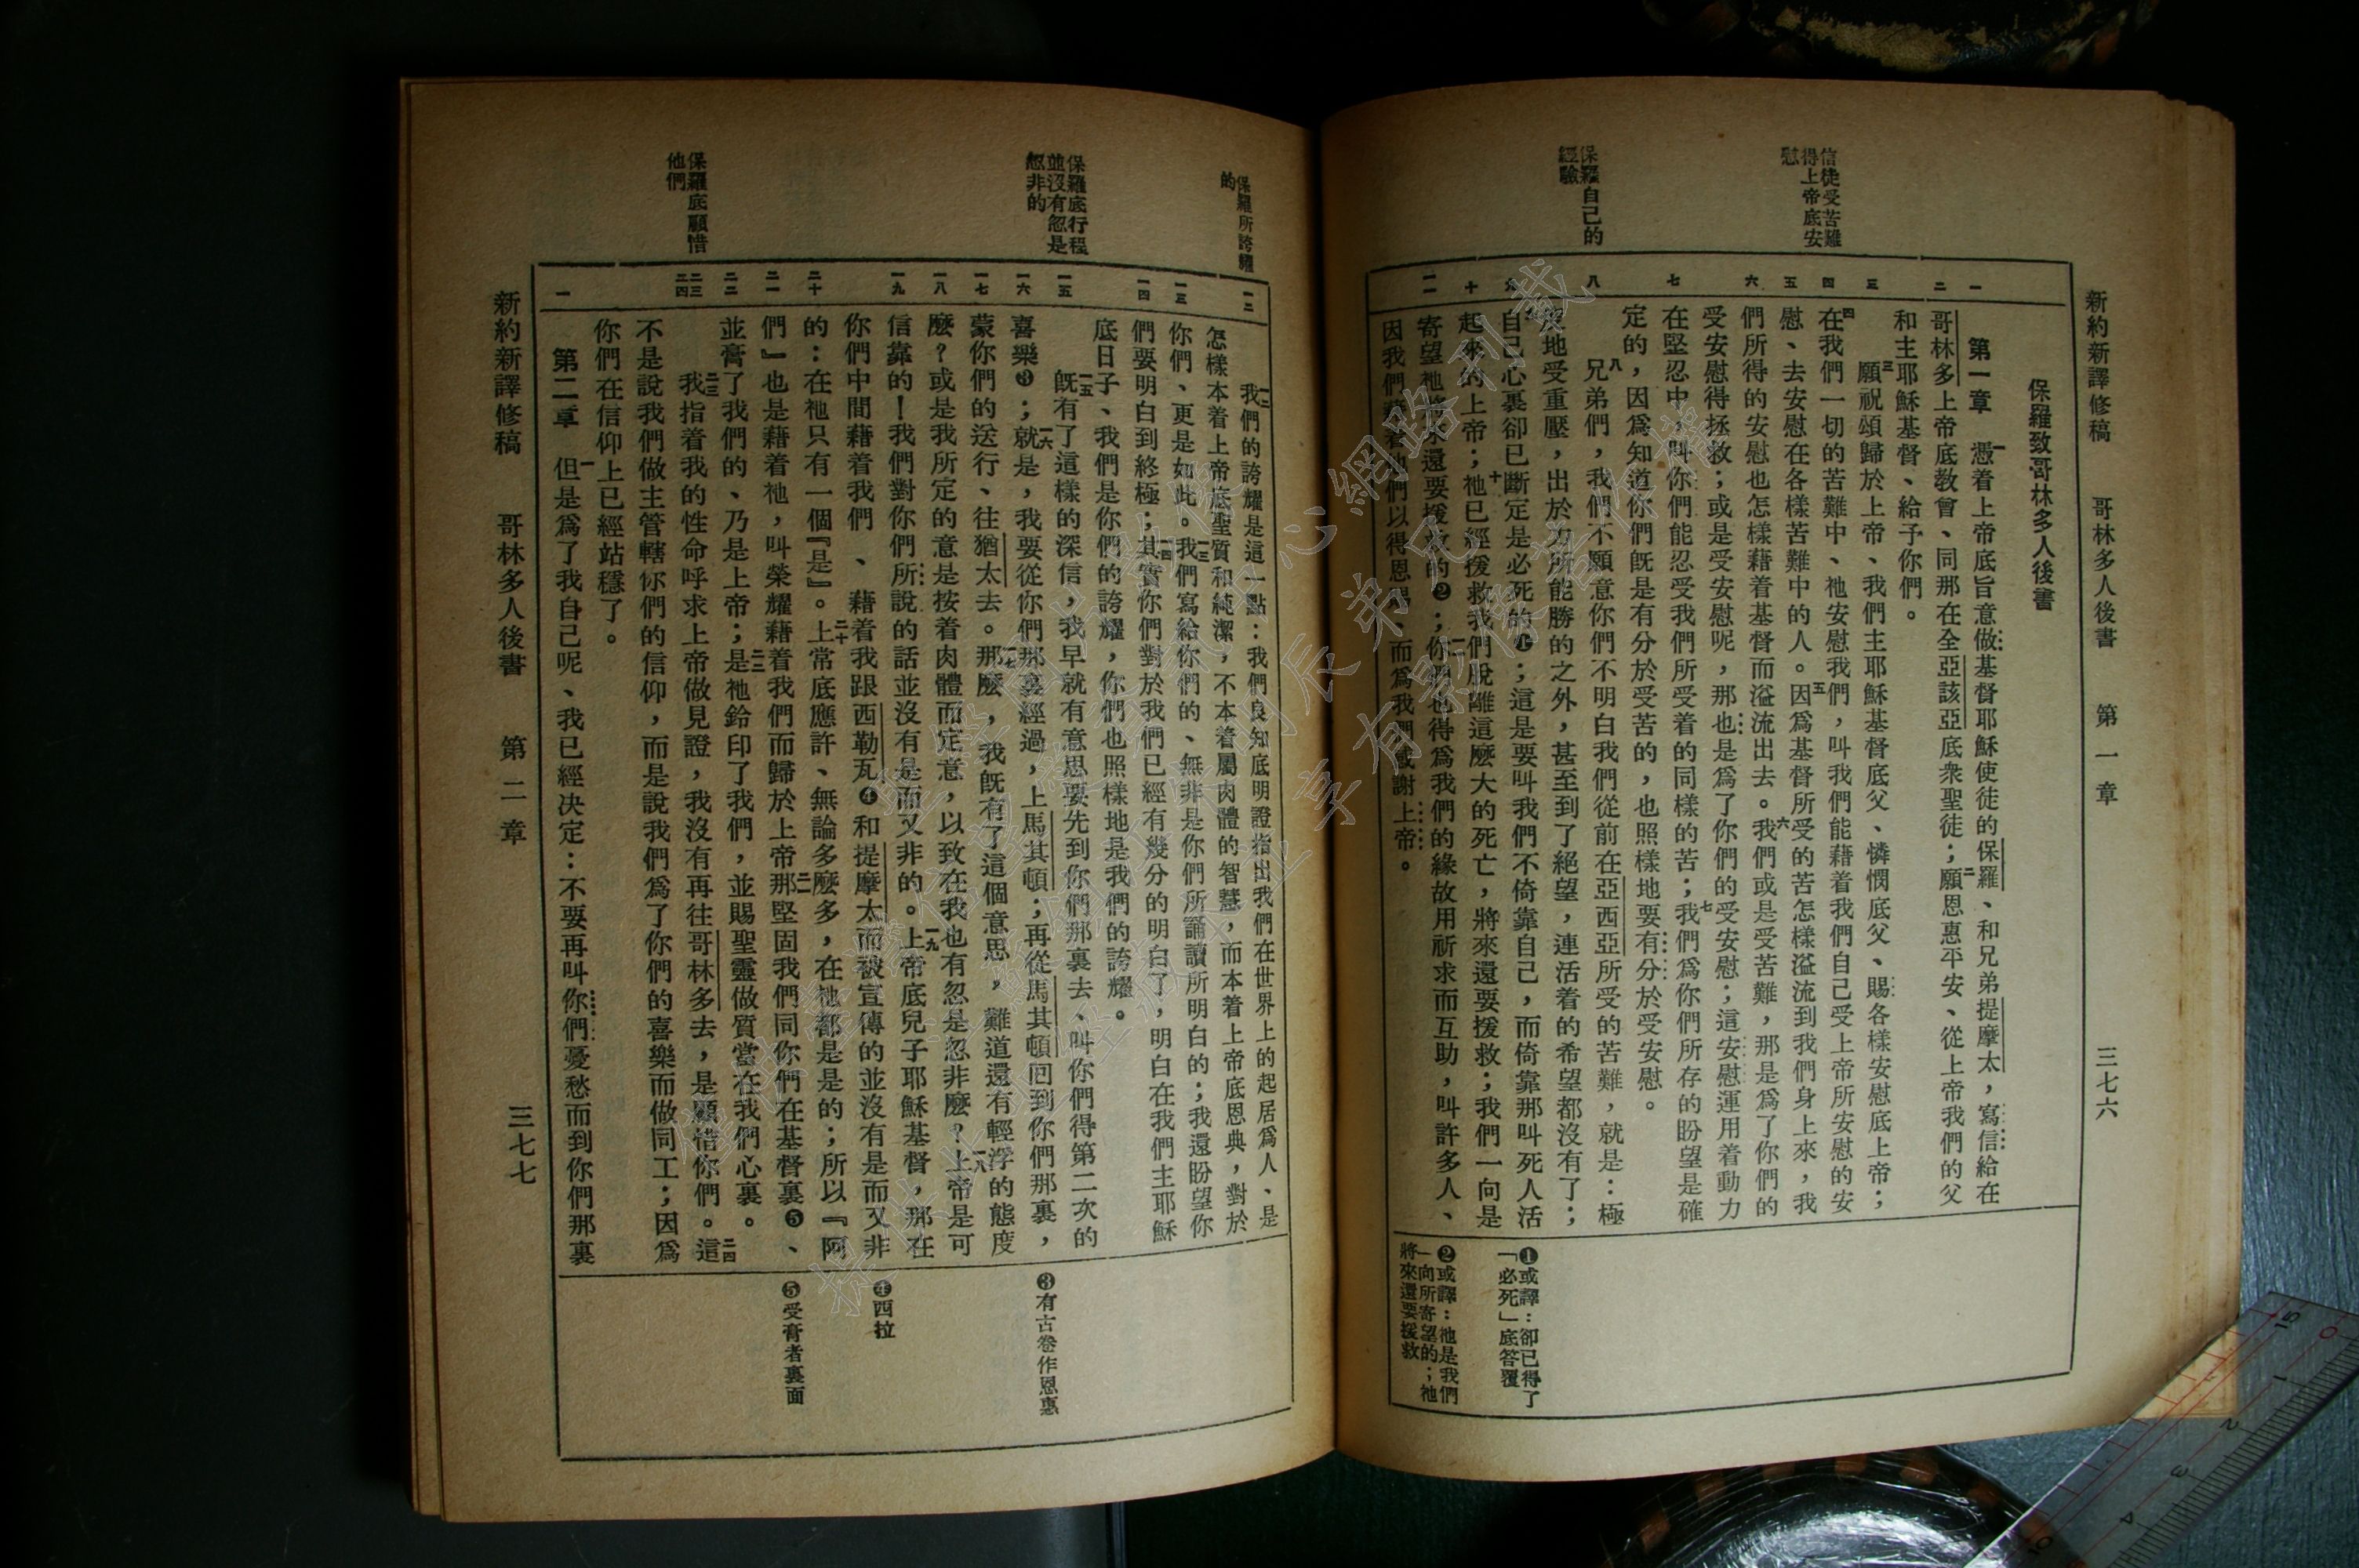 新約新譯修稿　哥林多人後書　第一章　三七六
信徒受苦難
得上帝底安
慰
保羅自己的
經驗
保羅致哥林多人後書
第一章　一憑着上帝底旨意做基督耶穌使徒的保羅、和兄弟提摩太，寫信給在
哥林多上帝底教會、同那在全亞該亞底衆聖徒；二願恩惠平安、從上帝我們的父
和主耶穌基督、給予你們。
三願祝頌歸於上帝、我們主耶穌基督底父、憐憫底父、賜各樣安慰底上帝；
四在我們一切的苦難中、祂安慰我們，叫我們能藉着我們自己受上帝所安慰的安
慰、去安慰在各樣苦難中的人。五因爲基督所受的苦怎樣溢流到我們身上來，我
們所得的安慰也怎樣藉着基督而溢流出去。六我們或是受苦難，那是爲了你們的
受安慰得拯救；或是受安慰呢，那也是爲了你們的受安慰；這安慰運用着動力
在堅忍中，叫你們能忍受我們所受着的同樣的苦；七我們爲你們所存的盼望是確
定的，因爲知道你們旣是有分於受苦的，也照樣地要有分於受安慰。
八兄弟們，我們不願意你們不明白我們從前在亞西亞所受的苦難，就是：極
度地受重壓，出於力所能勝的之外，甚至到了絕望，連活着的希望都沒有了；
自己心裏卻已斷定是必死的❶；這是要叫我們不倚靠自己，而倚靠那叫死人活
起來的上帝；十祂已經援救我們脫離這麽大的死亡，將來還要援救；我們一向是
寄望祂將來還要援救的❷；一一你們也得爲我們的緣故用祈求而互助，叫許多人、
因我們藉着他們以得恩賜、而爲我們感謝上帝。
❶或譯：卻已得了
「必死」底答覆
❷或譯：祂是我們
一向所寄望的；祂
將來還要援救
保羅所誇耀
的
保羅底行程
並沒有忽是
忽非的
保羅底顧惜
他們
一二我們的誇耀是這一點：我們良知底明證指出我們在世界上的起居爲人、是
怎樣本着上帝底聖質和純潔，不本着屬肉體的智慧，而本着上帝底恩典，對於
你們、更是如此。一三我們寫給你們的、無非是你們所誦讀所明白的；我還盼望你
們要明白到終極；一四其實你們對於我們已經有幾分的明白了，明白在我們主耶穌
底日子、我們是你們的誇耀，你們也照樣地是我們的誇耀。
一五旣有了這樣的深信，我早就有意思要先到你們那裏去、叫你們得第二次的
喜樂❸；一六就是，我要從你們那裏經過，上馬其頓；再從馬其頓回到你們那裏，
蒙你們的送行、往猶太去。一七那麽，我旣有了這個意思，難道還有輕浮的態度
麽？或是我所定的意是按着肉體而定意，以致在我也有忽是忽非麽？一八上帝是可
信靠的！我們對你們所說的話並沒有是而又非的。一九上帝底兒子耶穌基督，那在
你們中間藉着我們、藉着我跟西勒瓦❹和提摩太而被宣傳的並沒有是而又非
的：在祂只有一個『是』。二十上帝底應許、無論多麽多，在祂都是是的；所以『阿
們』也是藉着祂，叫榮耀藉着我們而歸於上帝。二一那堅固我們同你們在基督裏❺、
並膏了我們的、乃是上帝；二二是祂鈐印了我們，並賜聖靈做質當在我們心裏。
二三我指着我的性命呼求上帝做見證，我沒有再往哥林多去，是顧惜你們。二四這
不是說我們做主管轄你們的信仰，而是說我們爲了你們的喜樂而做同工；因爲
你們在信仰上已經站穩了。
第二章　一但是爲了我自己呢、我已經決定：不要再叫你們憂愁而到你們那裏
❸有古卷作恩惠
❹西拉
❺受膏者裏面
新約新譯修稿　哥林多人後書　第二章　三七七